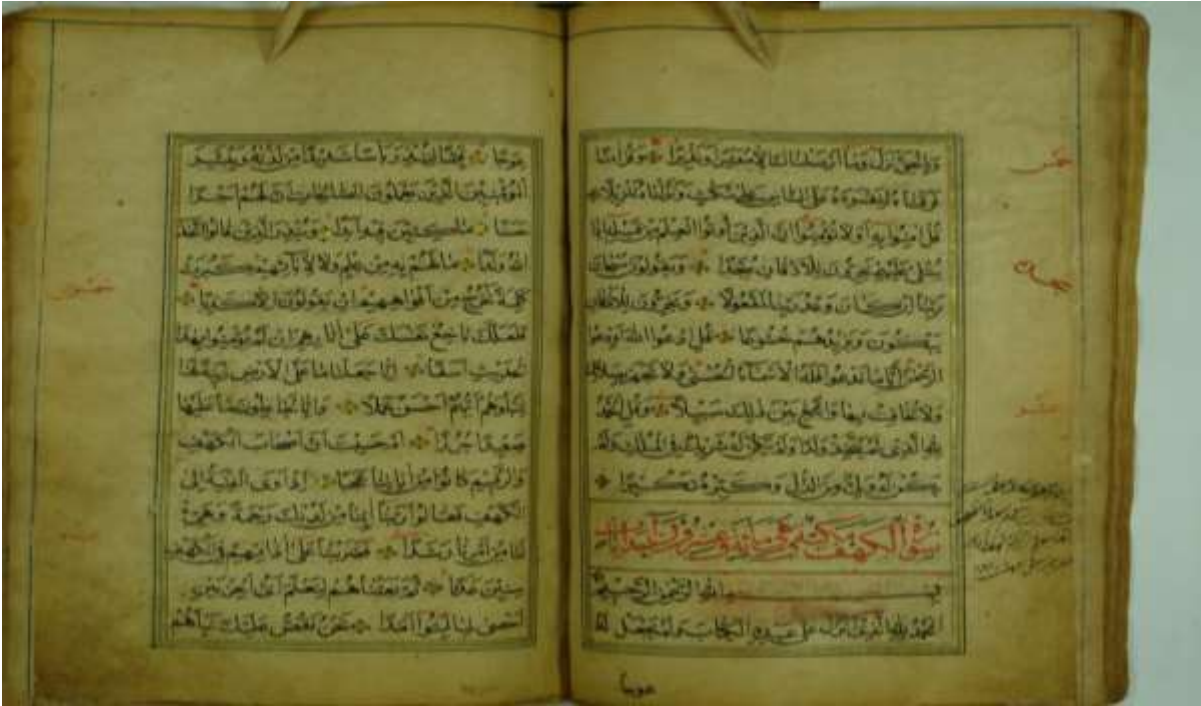 وبالحق نزل وما ارسلناك الا مبشرا ونذيرا وقرآنا
فرقناه لتقرأه على الناس على مكث ونزلناه تنزيلا
قل امنوا به أو لا تؤمنوا ان الذين أوتوا العلم من قبله إذا
يتلى عليهم يخرون للأذقان سجدا ويقولون سبحان
ربنا ان كان وعد ربنا لمفعولا ويخرون للأذقان
يبكون ويزيدهم خشوعا قل ادعوا الله أو ادعوا
الرحمن أيا ما تدعوا فله الأسماء الحسنى ولا تجهر بصلاتك
ولا تخافت بها وابتغ بين ذلك سبيلا وقل الحمد
لله الذي لم يتخذ ولدا ولم يكن له شريك في الملك ولم
يكن له ولي من الذل وكبره تكبيرا
سورة الكهف مكية وهي مائة
بسم الله الرحمن الرحيم
الحمد لله الذي أنزل على عبده الكتاب ولم يجعل له
عوجا
خمس
عوجا قيما لينذر بأسا شديدا من لدنه ويبشر
المؤمنين الذين يعملون الصالحات أن لهم أجرا
حسنا ماكثين فيه أبدا وينذر الذين قالوا اتخذ
الله ولدا ما لهم به من علم ولا لآبائهم كبرت
كلمة تخرج من أفواههم ان يقولون الا كذبا
فلعلك باخع نفسك على آثارهم ان لم يؤمنوا بهذا
الحديث أسفا إنا جعلنا ما على الأرض زينة لها
لنبلوهم أيهم أحسن عملا وإنا لجاعلون ما عليها
صعيدا جرزا أم حسبت أن أصحاب الكهف
والرقيم كانوا من آياتنا عجبا إذ أوى الفتية إلى
الكهف فقالوا ربنا آتنا من لدنك رحمة وهيئ
لنا من أمرنا رشدا فضربنا على آذانهم في الكهف
سنين عددا ثم بعثناهم لنعلم أي الحزبين
أحصى لما لبثوا أمدا نحن نقص عليك نبأهم